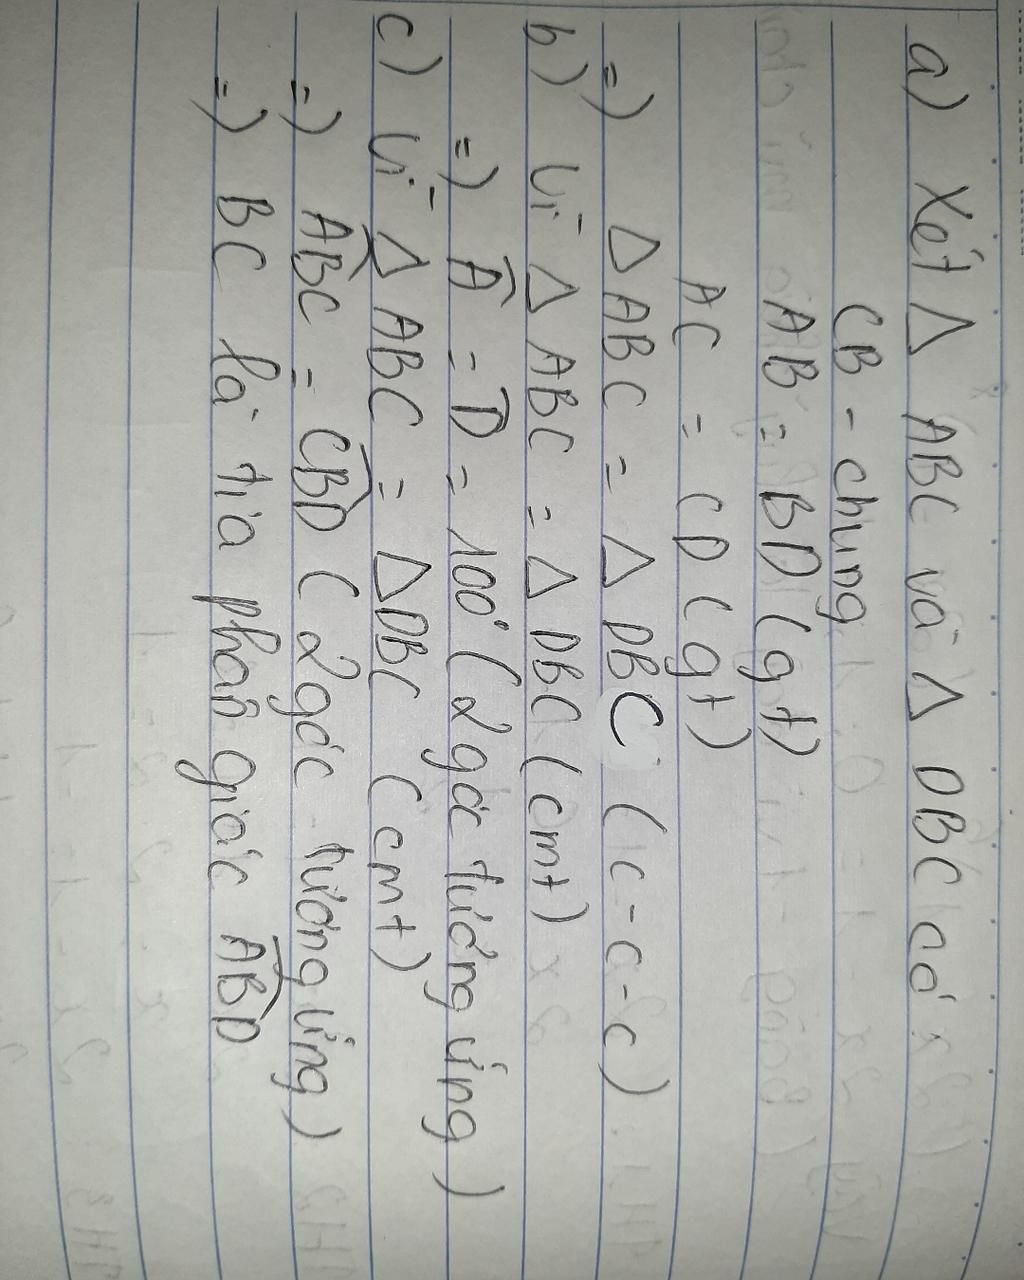 a) Xét Δ ABC và Δ DBC có
CB - chung
AB = BD (gt)
AC = CD (gt)
=) Δ ABC = Δ DBC (c-c-c)
b) Vì Δ ABC = Δ DBC (cmt)
=) Â = D̂ = 100° (2 góc tương ứng)
c) Vì Δ ABC = Δ DBC (cmt)
=) ABC = CBD (2 góc tương ứng)
=) BC là tia phân giác ABD